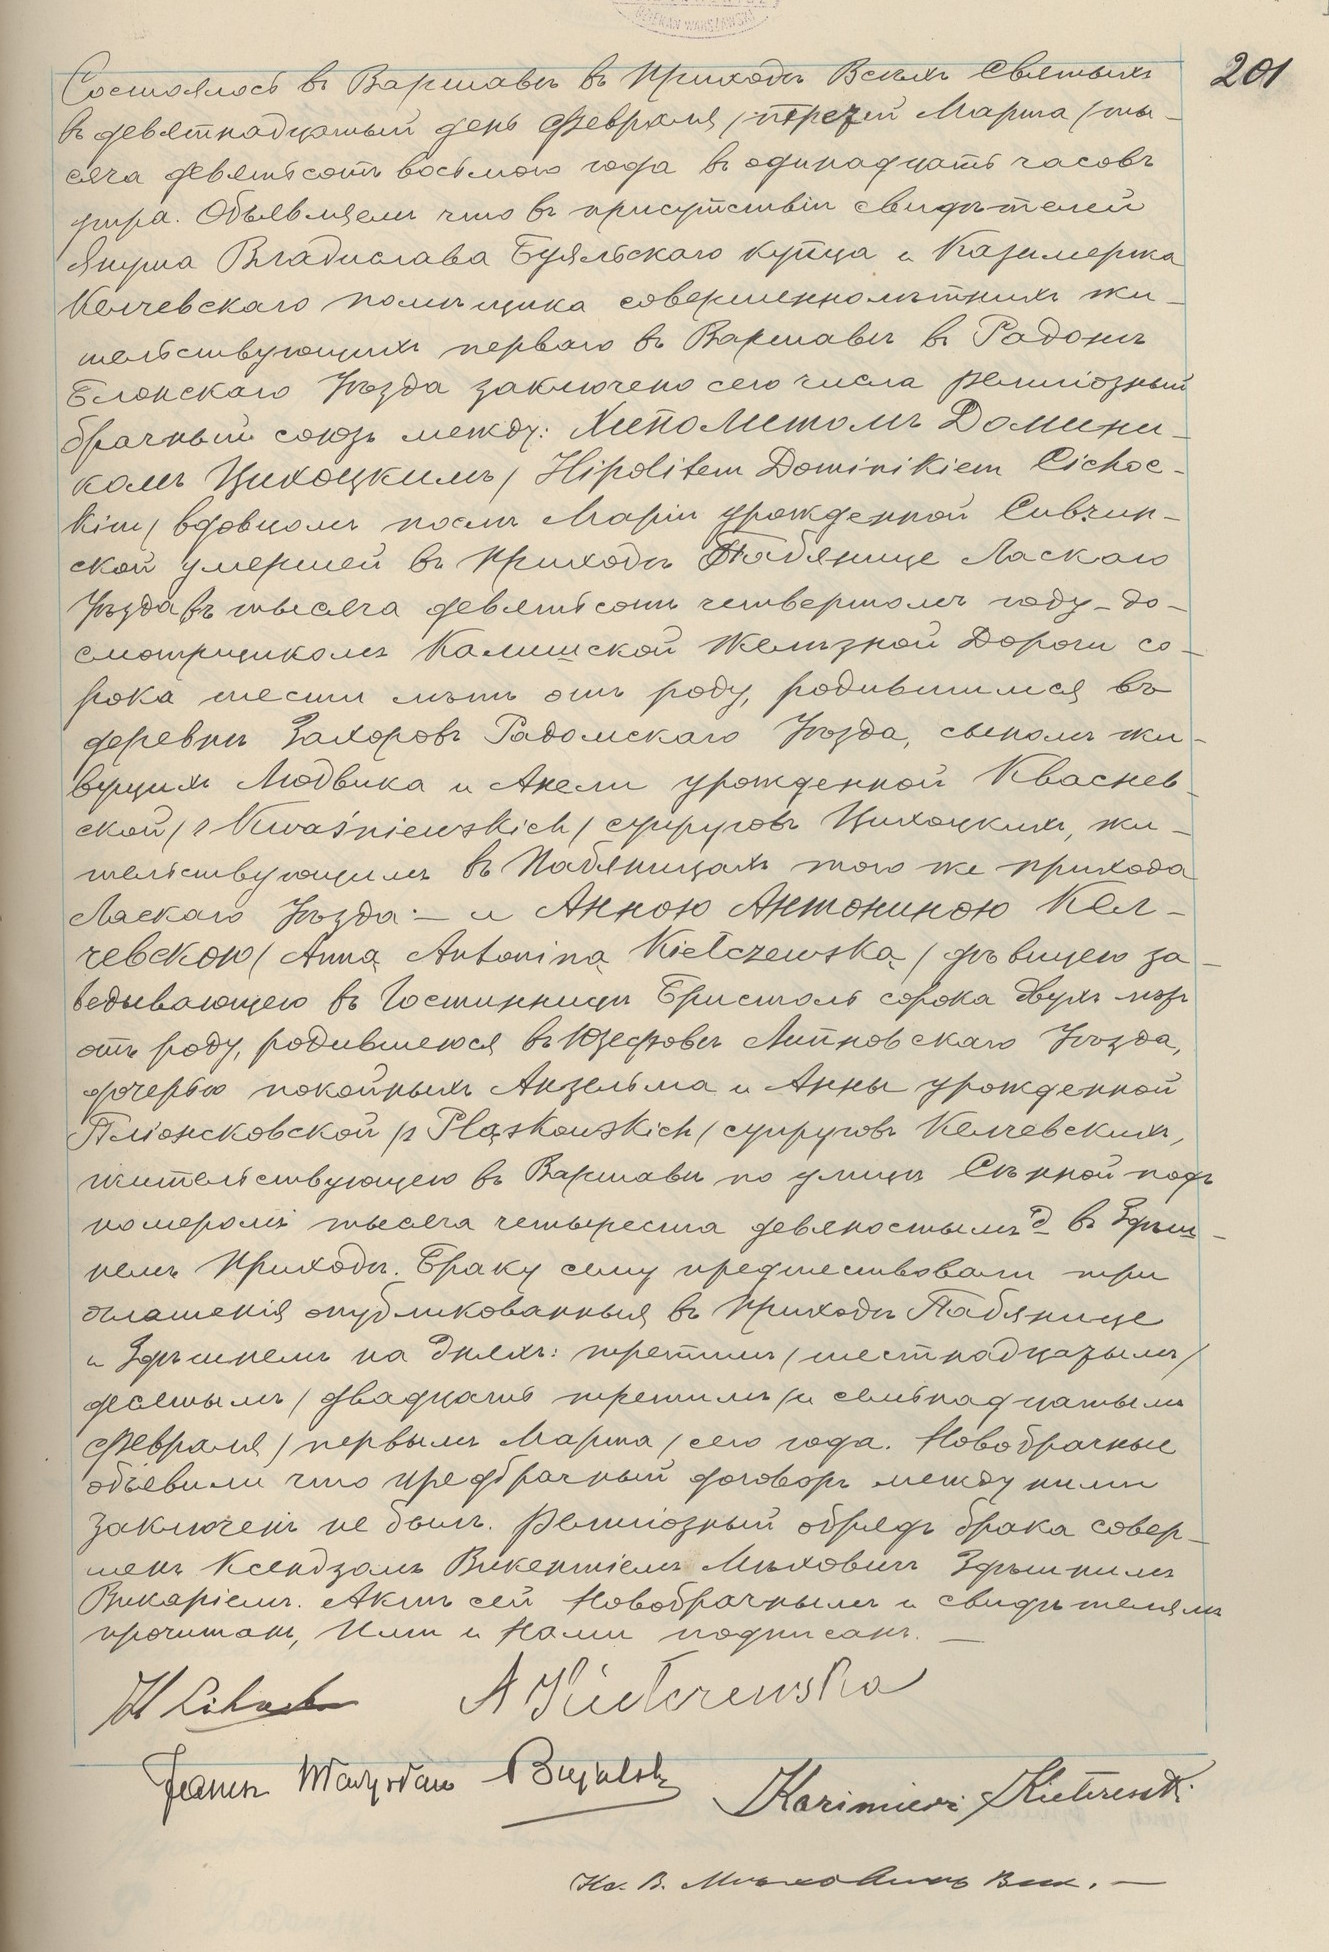 DZIEKAN WARSZAWSKI
201
Состоялось въ Варшавѣ въ Приходѣ Всѣхъ Святыхъ
въ девятнадцатый день Февраля / третій Марта / ты-
сяча девятьсотъ восьмого года въ одинадцать часовъ
утра. Объявляемъ что въ присутствіи свидѣтелей
Януша Владислава Буяльскаго купца и Казимержа
Келчевскаго помѣщика совершеннолѣтнихъ жи-
тельствующихъ перваго въ Варшавѣ въ
Блонскаго Уѣзда заключено сего числа религіозный
брачный союзъ между: Хиполитомъ Домини-
комъ Цихоцкимъ / Hipolitem Dominikiem Cichoc-
kim / вдовцомъ послѣ Маріи урожденной
ской умершей въ Приходѣ Пабянице Ласкаго
Уѣзда въ тысяча девятьсотъ четвертомъ году – до-
смотрщикомъ Калишской Желѣзной Дороги со-
рока шести лѣтъ отъ роду, родившимся въ
деревнѣ Захоровъ Радомскаго Уѣзда, сыномъ жи-
вущихъ Людвика и Анели урожденной Кваснев-
ской / z Kwaśniewskich / супруговъ Цихоцкихъ, жи-
тельствующимъ въ Пабяницахъ того же прихода
Ласкаго Уѣзда: – и Анною Антониною Кел-
чевскою / Anną Antoniną Kiełczewską / дѣвицею за-
вѣдывающею въ Гостинницѣ Бристоль сорока двухъ лѣтъ
отъ роду, родившеюся въ Юзефовѣ Липновскаго Уѣзда,
дочерью покойныхъ Анзельма и Анны урожденной
Плонсковской / z Pląskowskich / супруговъ Келчевскихъ,
жительствующею въ Варшавѣ по улицѣ Сѣнной подъ
номеромъ тысяча четыреста девяностымъ д въ Здѣш-
немъ Приходѣ. Браку сему предшествовали три
оглашенія опубликованныя въ Приходѣ Пабянице
и Здѣшнемъ на дняхъ: третьимъ / шестнадцатымъ /
десятымъ / двадцать третимъ / и семнадцатымъ
Февраля / первымъ Марта / сего года. Новобрачные
объявили что предбрачный договоръ между ними
заключенъ не былъ. Религіозный обрядъ брака совер-
шенъ Ксендзомъ Викентіемъ Мѣховичъ Здѣшнимъ
Викаріемъ. Актъ сей Новобрачнымъ и свидѣтелямъ
прочитанъ, Ими и Нами подписанъ. –
A Kiełczewska
Janusz Władysław Bujalski
Kazimierz Kiełczewski
Кс. В. Мѣховичъ Вик. –